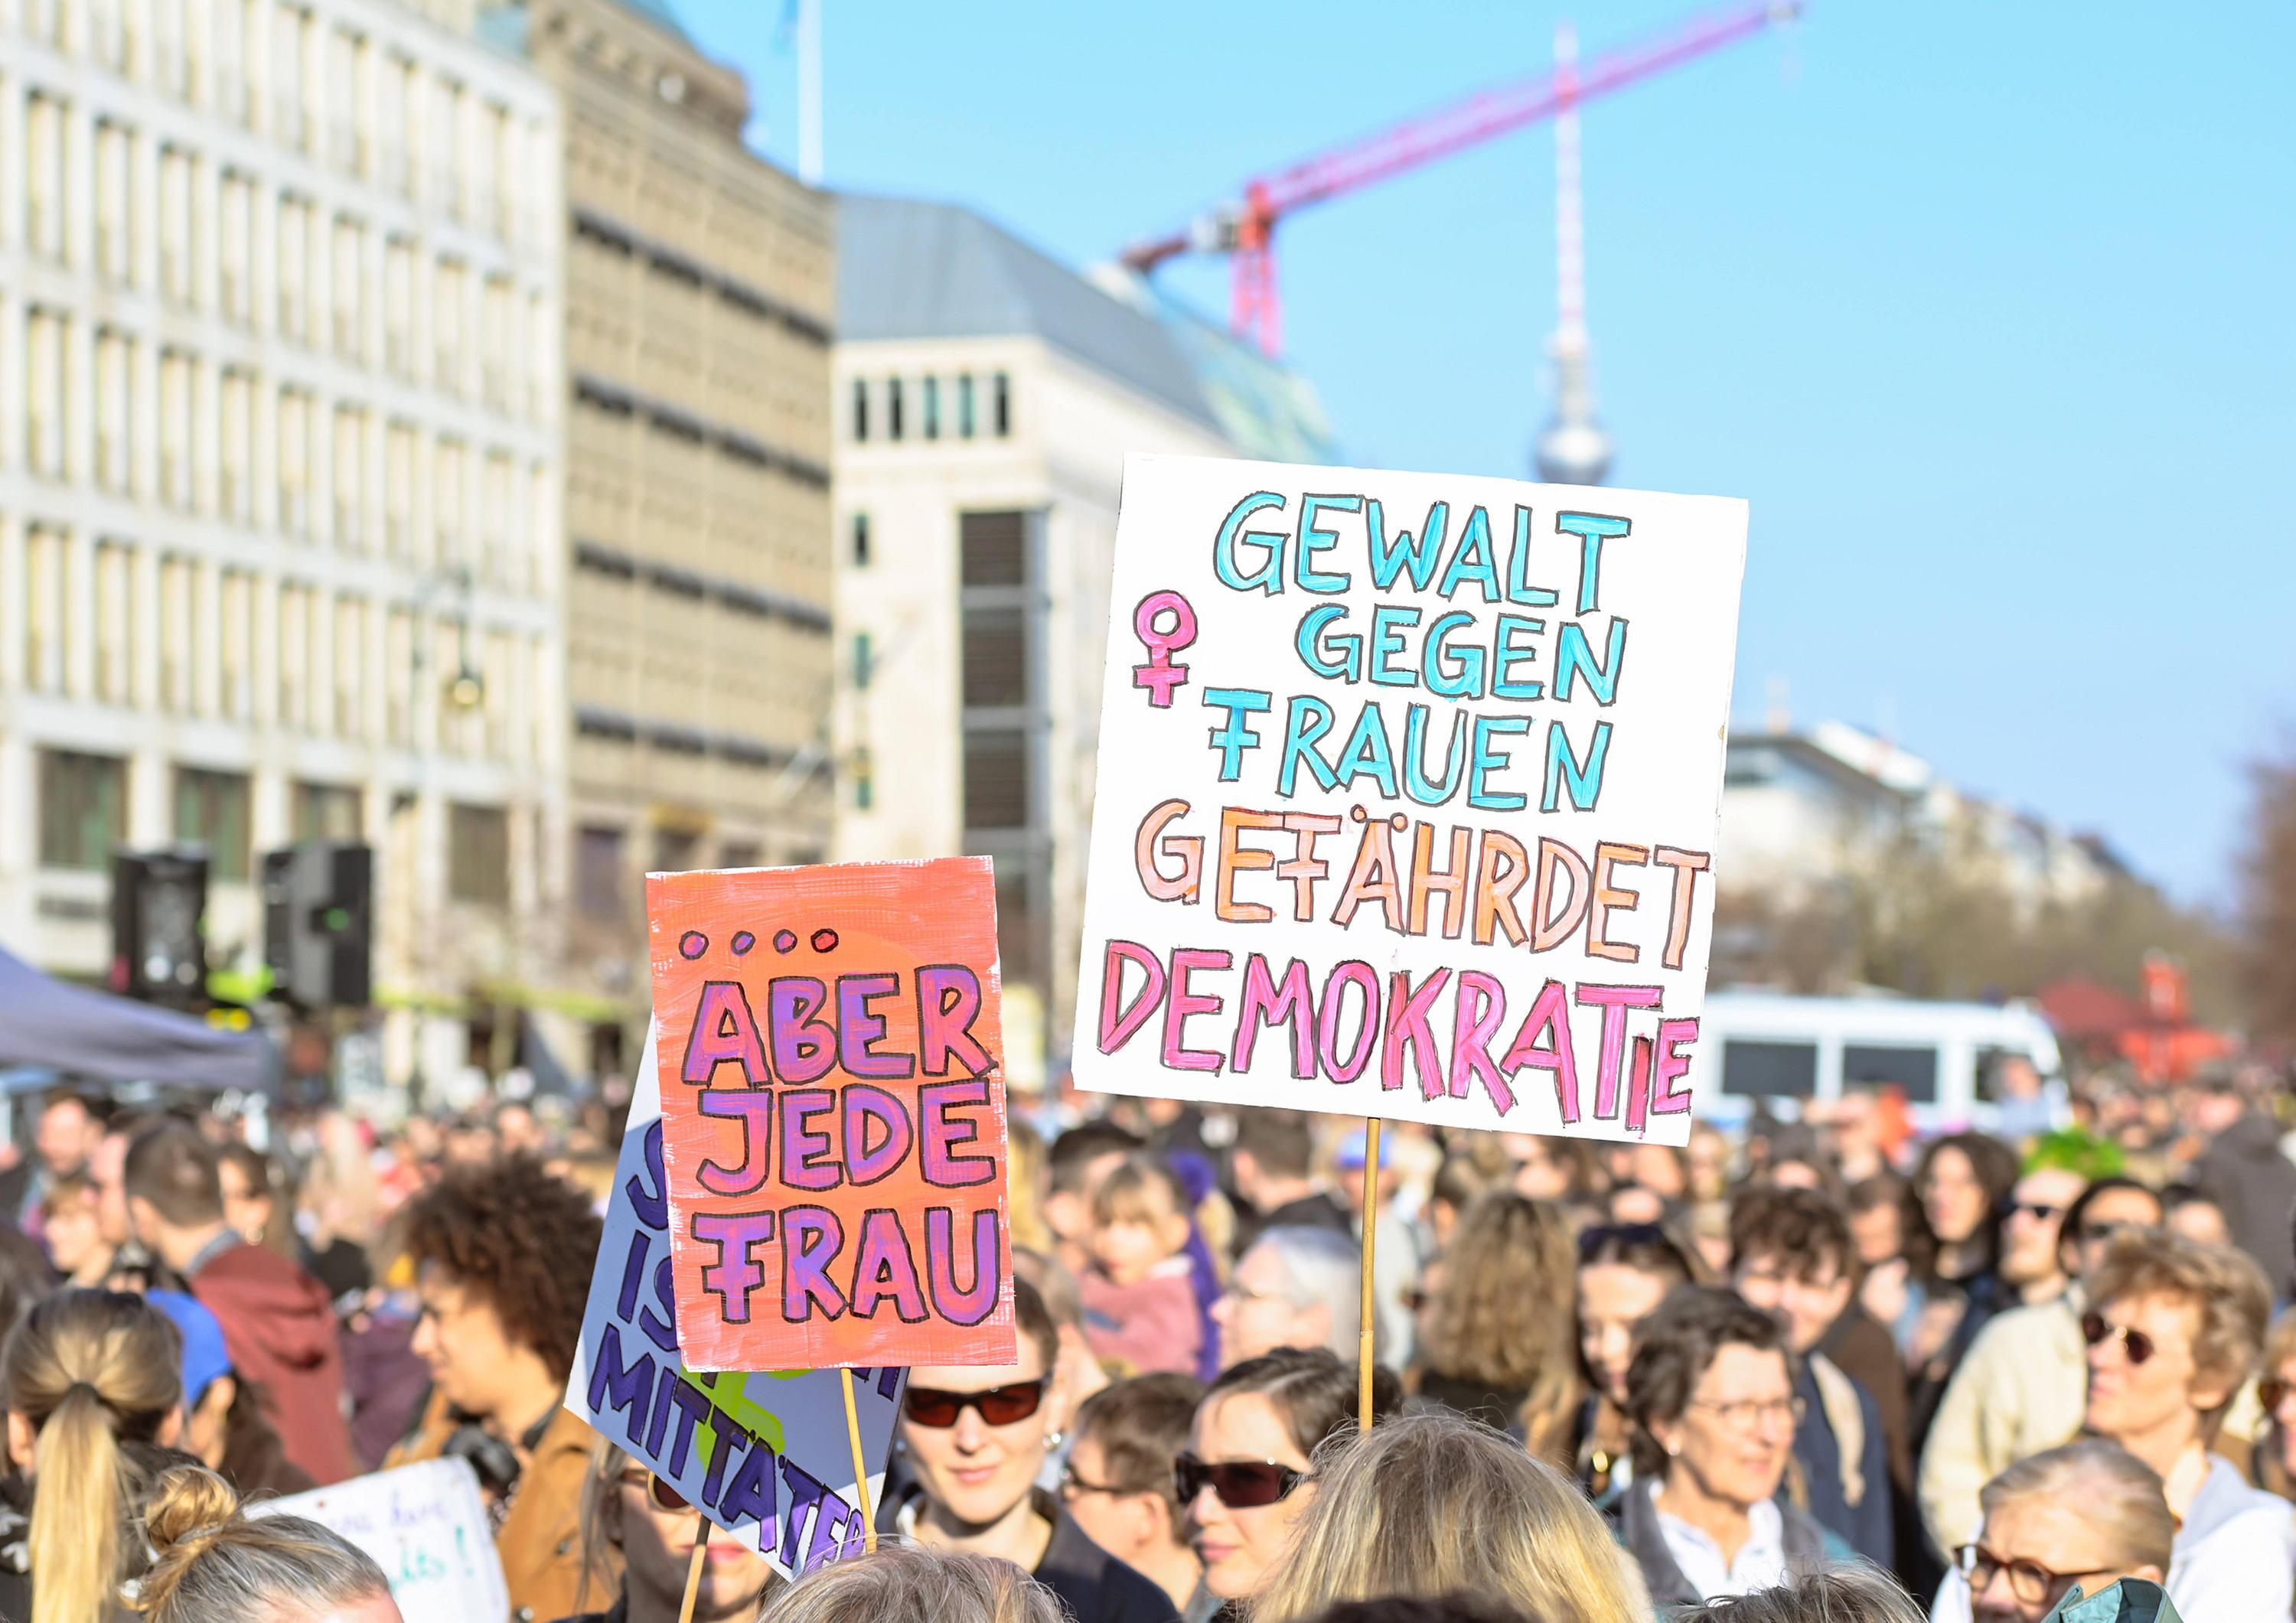 GEWALT
GEGEN
FRAUEN
GEFÄHRDET
DEMOKRATIE
....
ABER
JEDE
FRAU
MITTÄTER